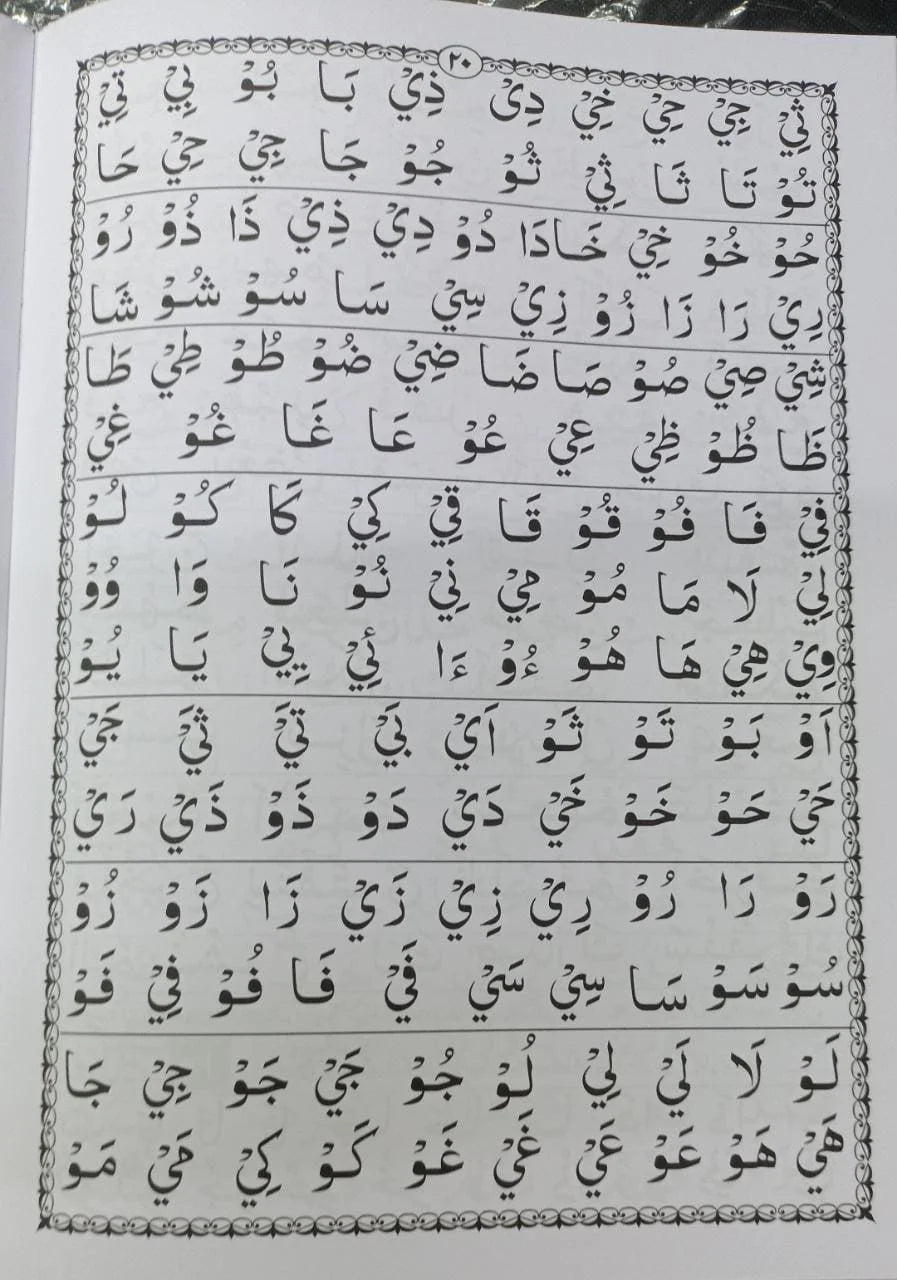 ٢٠
ثِيْ جِيْ حِيْ خِيْ دِىْ ذِيْ بَا بُوْ بِيْ تِيْ
تُوْ تَا ثَا ثِيْ ثُوْ جُوْ جَا جِيْ حِيْ حَا
حُوْ خُوْ خِيْ خَادَا دُوْ دِيْ ذِيْ ذَا ذُوْ رُوْ
رِيْ رَا زَا زُوْ زِيْ سِيْ سَا سُوْ شُوْ شَا
شِيْ صِيْ صُوْ صَا ضَا ضِيْ ضُوْ طُوْ طِيْ طَا
ظَا ظُوْ ظِيْ عِيْ عُوْ عَا غَا غُوْ غِيْ
فِيْ فَا فُوْ قُوْ قَا قِيْ كِيْ كَا كُوْ لُوْ
لِيْ لَا مَا مُوْ مِيْ نِيْ نُوْ نَا وَا وُوْ
وِيْ هِيْ هَا هُوْ ءُوْ ءَا ئِيْ يِيْ يَا يُوْ
اَوْ بَوْ تَوْ ثَوْ اَيْ بَيْ تَيْ ثَيْ جَيْ
حَيْ حَوْ خَوْ خَيْ دَيْ دَوْ ذَوْ ذَيْ رَيْ
رَوْ رَا رُوْ رِيْ زِيْ زَيْ زَا زَوْ زُوْ
سُوْ سَوْ سَا سِيْ سَيْ فَيْ فَا فُوْ فِيْ فَوْ
لَوْ لَا لَيْ لِيْ لُوْ جُوْ جَيْ جَوْ جِيْ جَا
هَيْ هَوْ عَوْ عَيْ غَيْ غَوْ كَوْ كِيْ مَيْ مَوْ